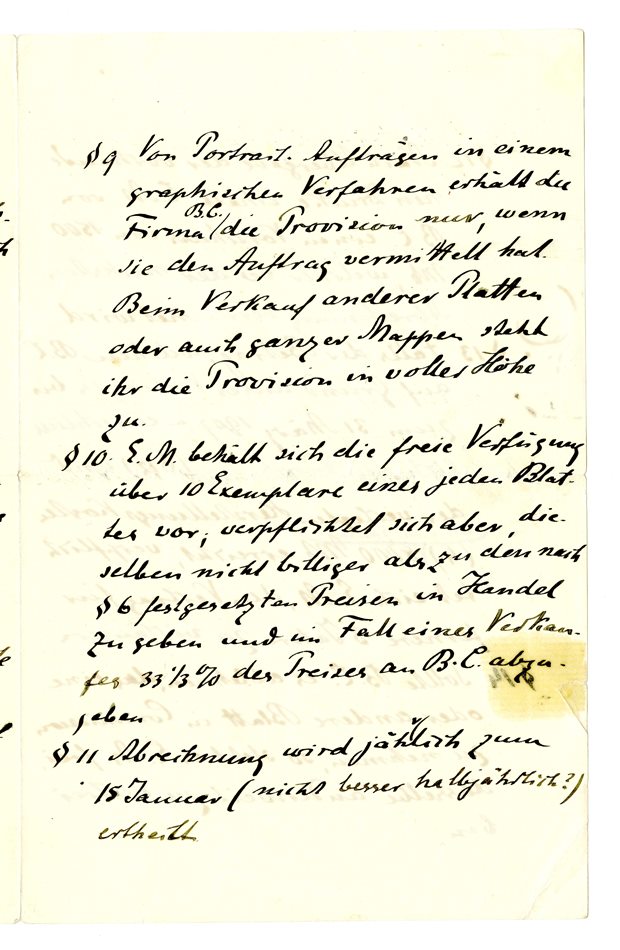 § 9 Von Portrait-Aufträgen in einem
graphischen Verfahren erhält die
Firma B.C. die Provision nur, wenn
sie den Auftrag vermittelt hat.
Beim Verkauf anderer Platten
oder auch ganzer Mappen steht
ihr die Provision in voller Höhe
zu.
§ 10. E. M. behält sich die freie Verfügung
über 10 Exemplare eines jeden Blat-
tes vor, verpflichtet sich aber, die-
selben nicht billiger als zu den nach
§ 6 festgesetzten Preisen in Handel
zu geben und im Fall eines Verkau-
fes 33 1/3 % des Preises an B.C. abzu-
geben
§ 11 Abrechnung wird jährlich zum
15 Januar (nicht besser halbjährlich?)
ertheilt